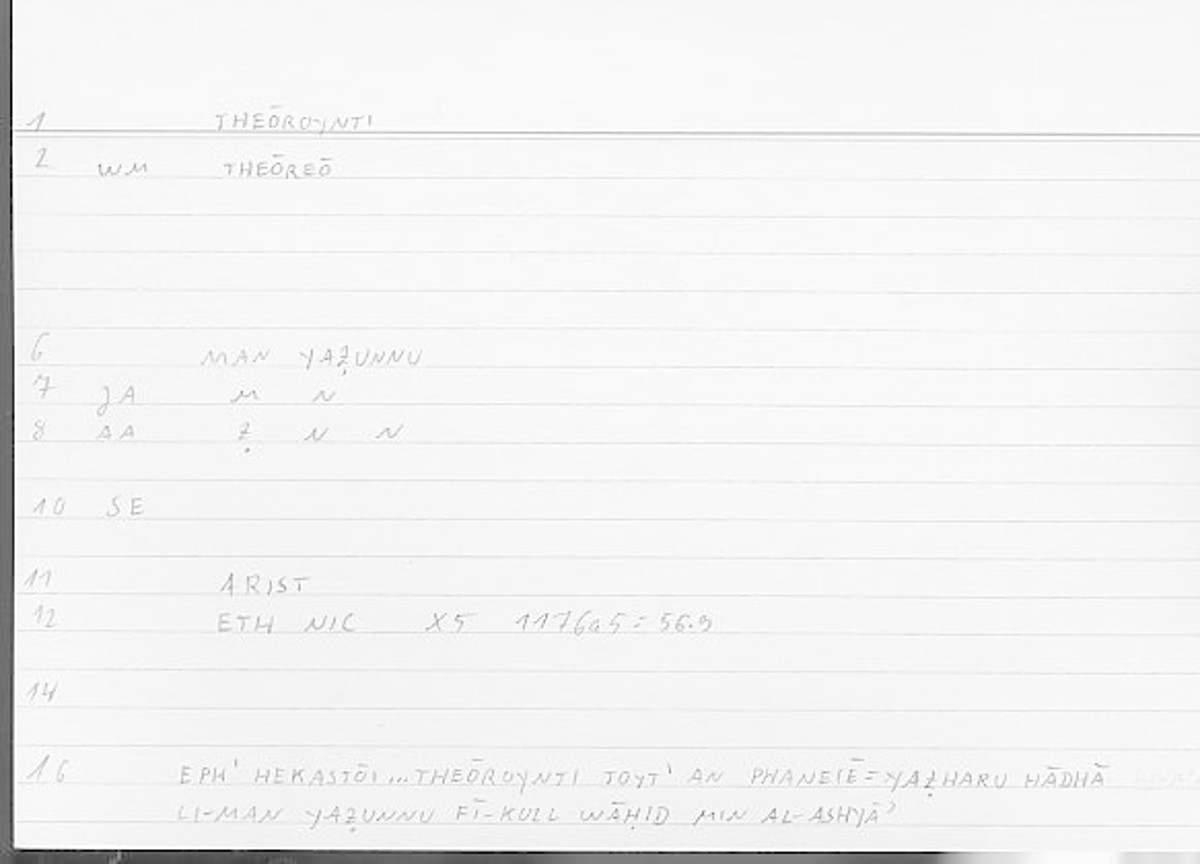 1 THEŌROYNTI
2 WM THEŌREŌ
6 MAN YAẒUNNU
7 JA M N
8 AA Ẓ N N
10 SE
11 ARIST
12 ETH NIC X5 1176a5 = 56.9
14
16 EPH' HEKASTŌI...THEŌROYNTI TOYT' AN PHANEIĒ = YAẒHARU HĀDHĀ
LI-MAN YAẒUNNU FĪ-KULL WĀḤID MIN AL-ASHYĀʾ